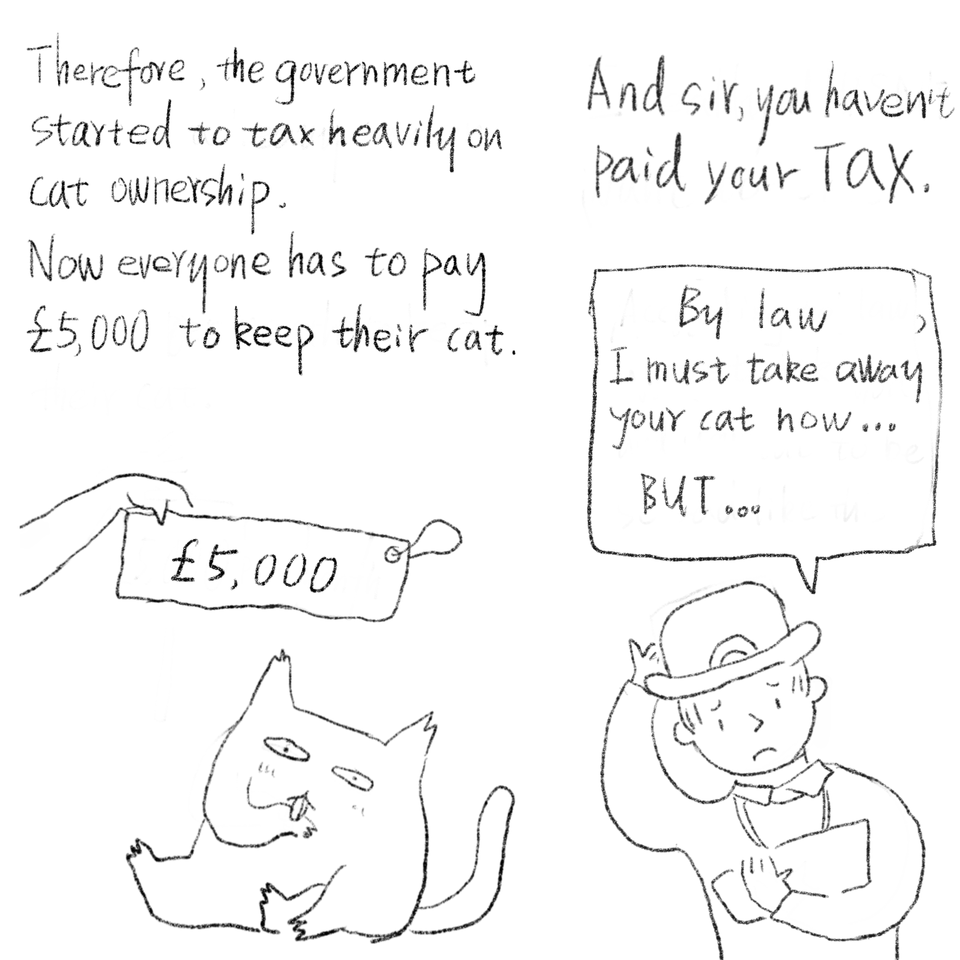 Therefore, the government
started to tax heavily on
cat ownership.
Now everyone has to pay
£5,000 to keep their cat.
£5,000
And sir, you haven't
paid your TAX.
By law,
I must take away
your cat now...
BUT...